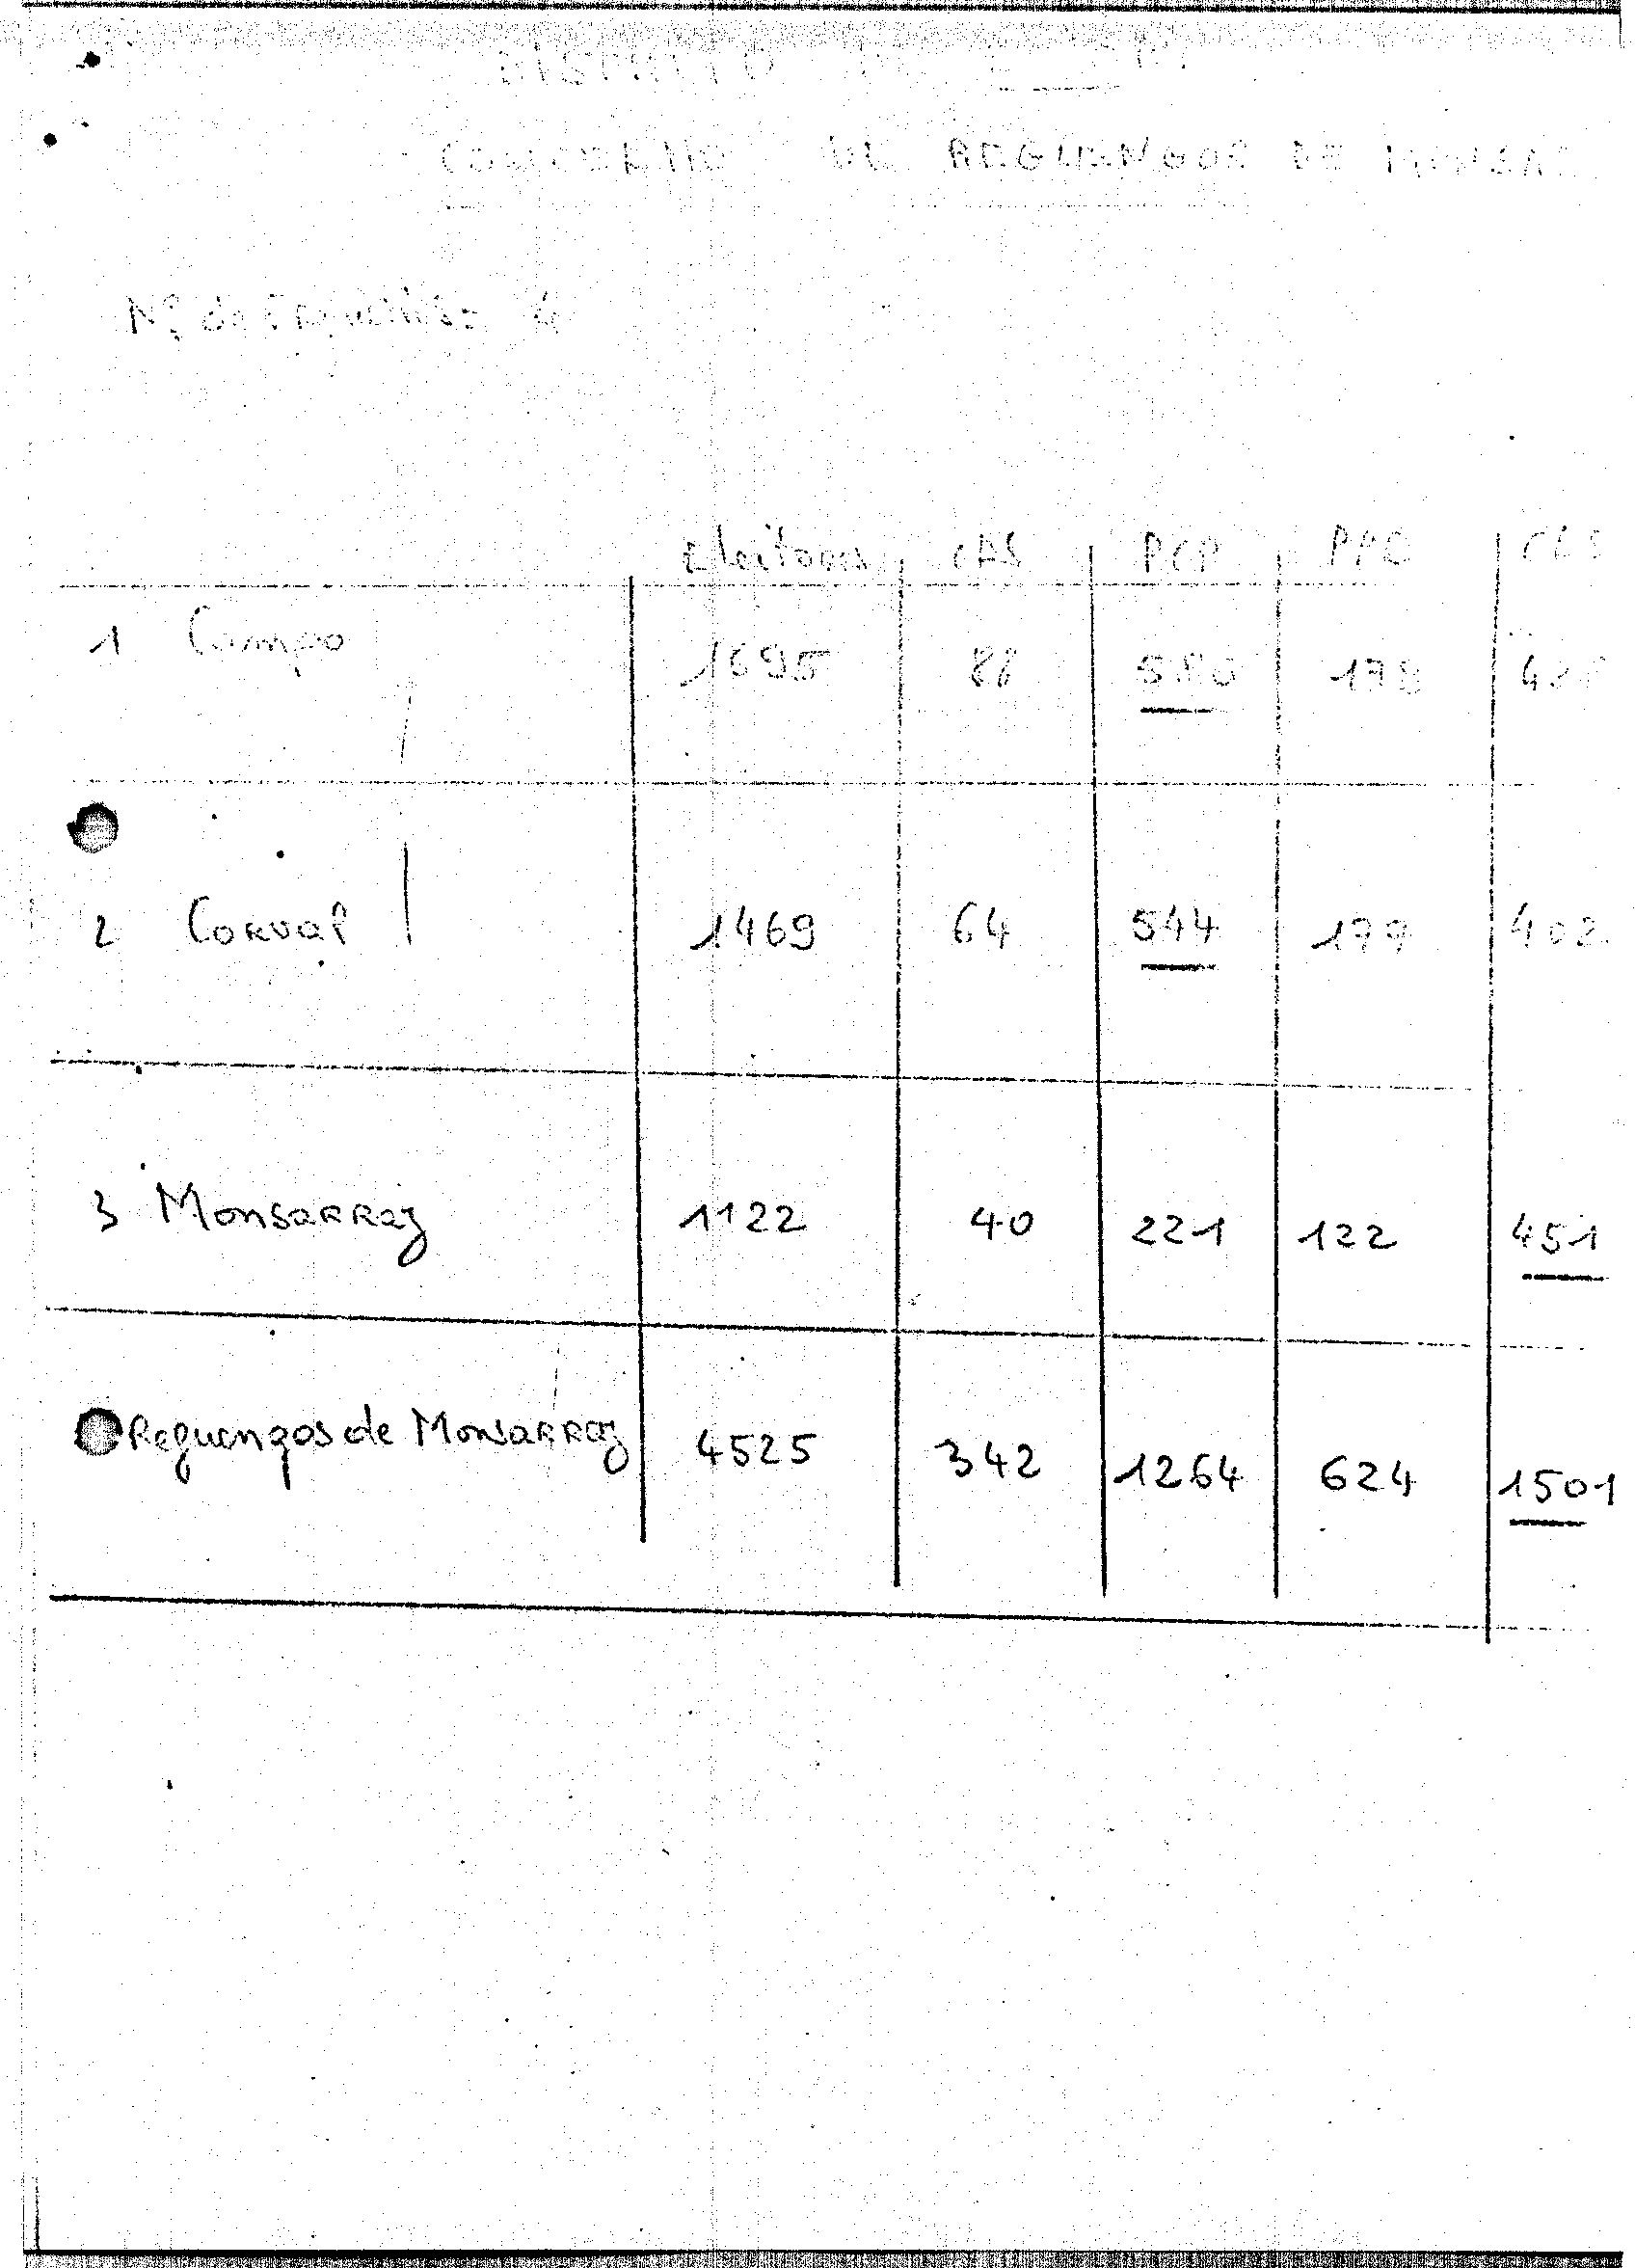 DISTRITO
CONCELHO DE REGUENGOS DE MONSAR
Nº de Freguesias 4
Eleitores CDS PCP PPD
1 Campo 1695 178
2 Corval 1469 64 544 179 402
3 Monsarraz 1122 40 221 122 451
Reguengos de Monsarraz 4525 342 1264 624 1501